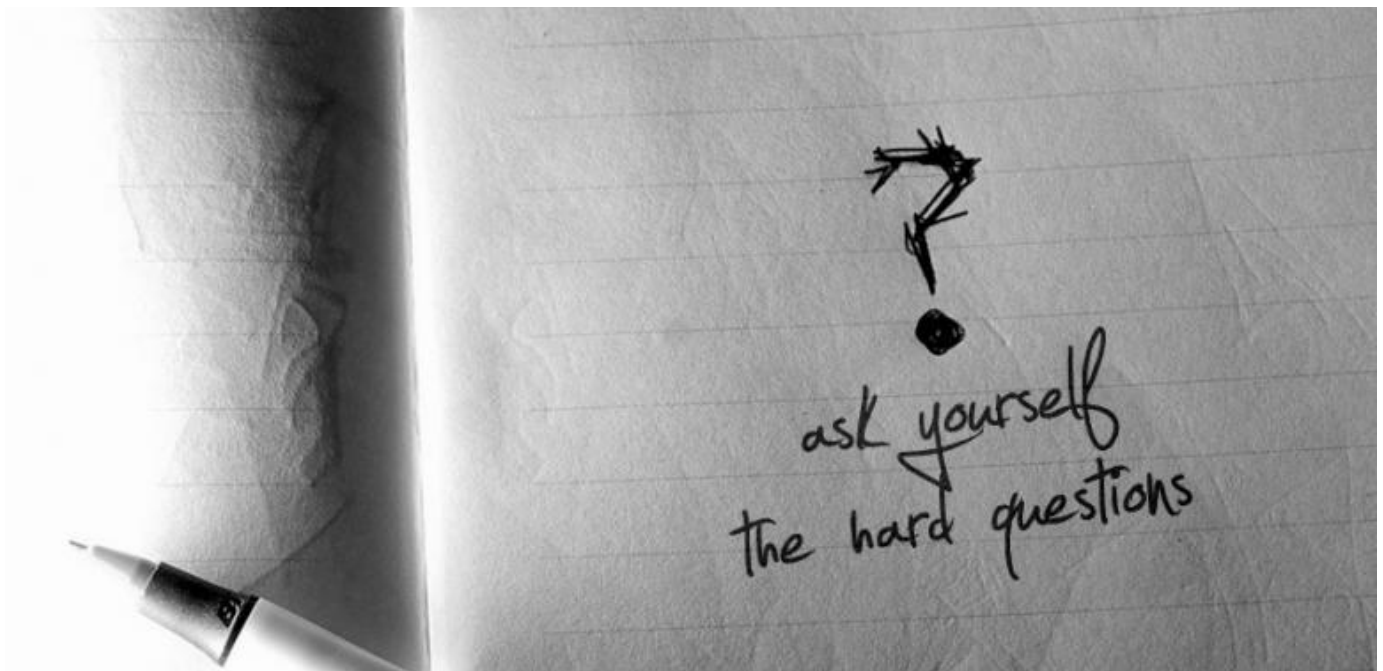 ?
ask yourself
the hard questions